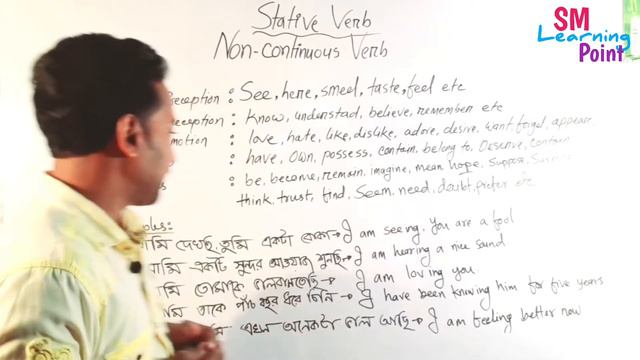 SM
Learning
Point
Stative Verb
Non-continuous Verb
ception : See, here, smeel, taste, feel etc
ception : know, understad, believe, remember etc
motion : love, hate, like, dislike, adore, desire, want forget, appear
: have, own, possess, contain, belong to, Deserve, contain
: be, become, remain, imagine, mean, hope, suppose,
think, trust, find, seem, need, doubt, prefer etc
ples:
আমি দেখছি তুমি একটা বোকা → I am seeing. You are a fool
আমি একটি সুন্দর আওয়াজ শুনছি → I am hearing a nice sund
আমি তোমাকে ভালবাসতেছি → I am loving you
আমি তাকে পাঁচ বছর ধরে চিনি → I have been knowing him for five years
এখন অনেকটা ভাল আছি → I am feeling better now